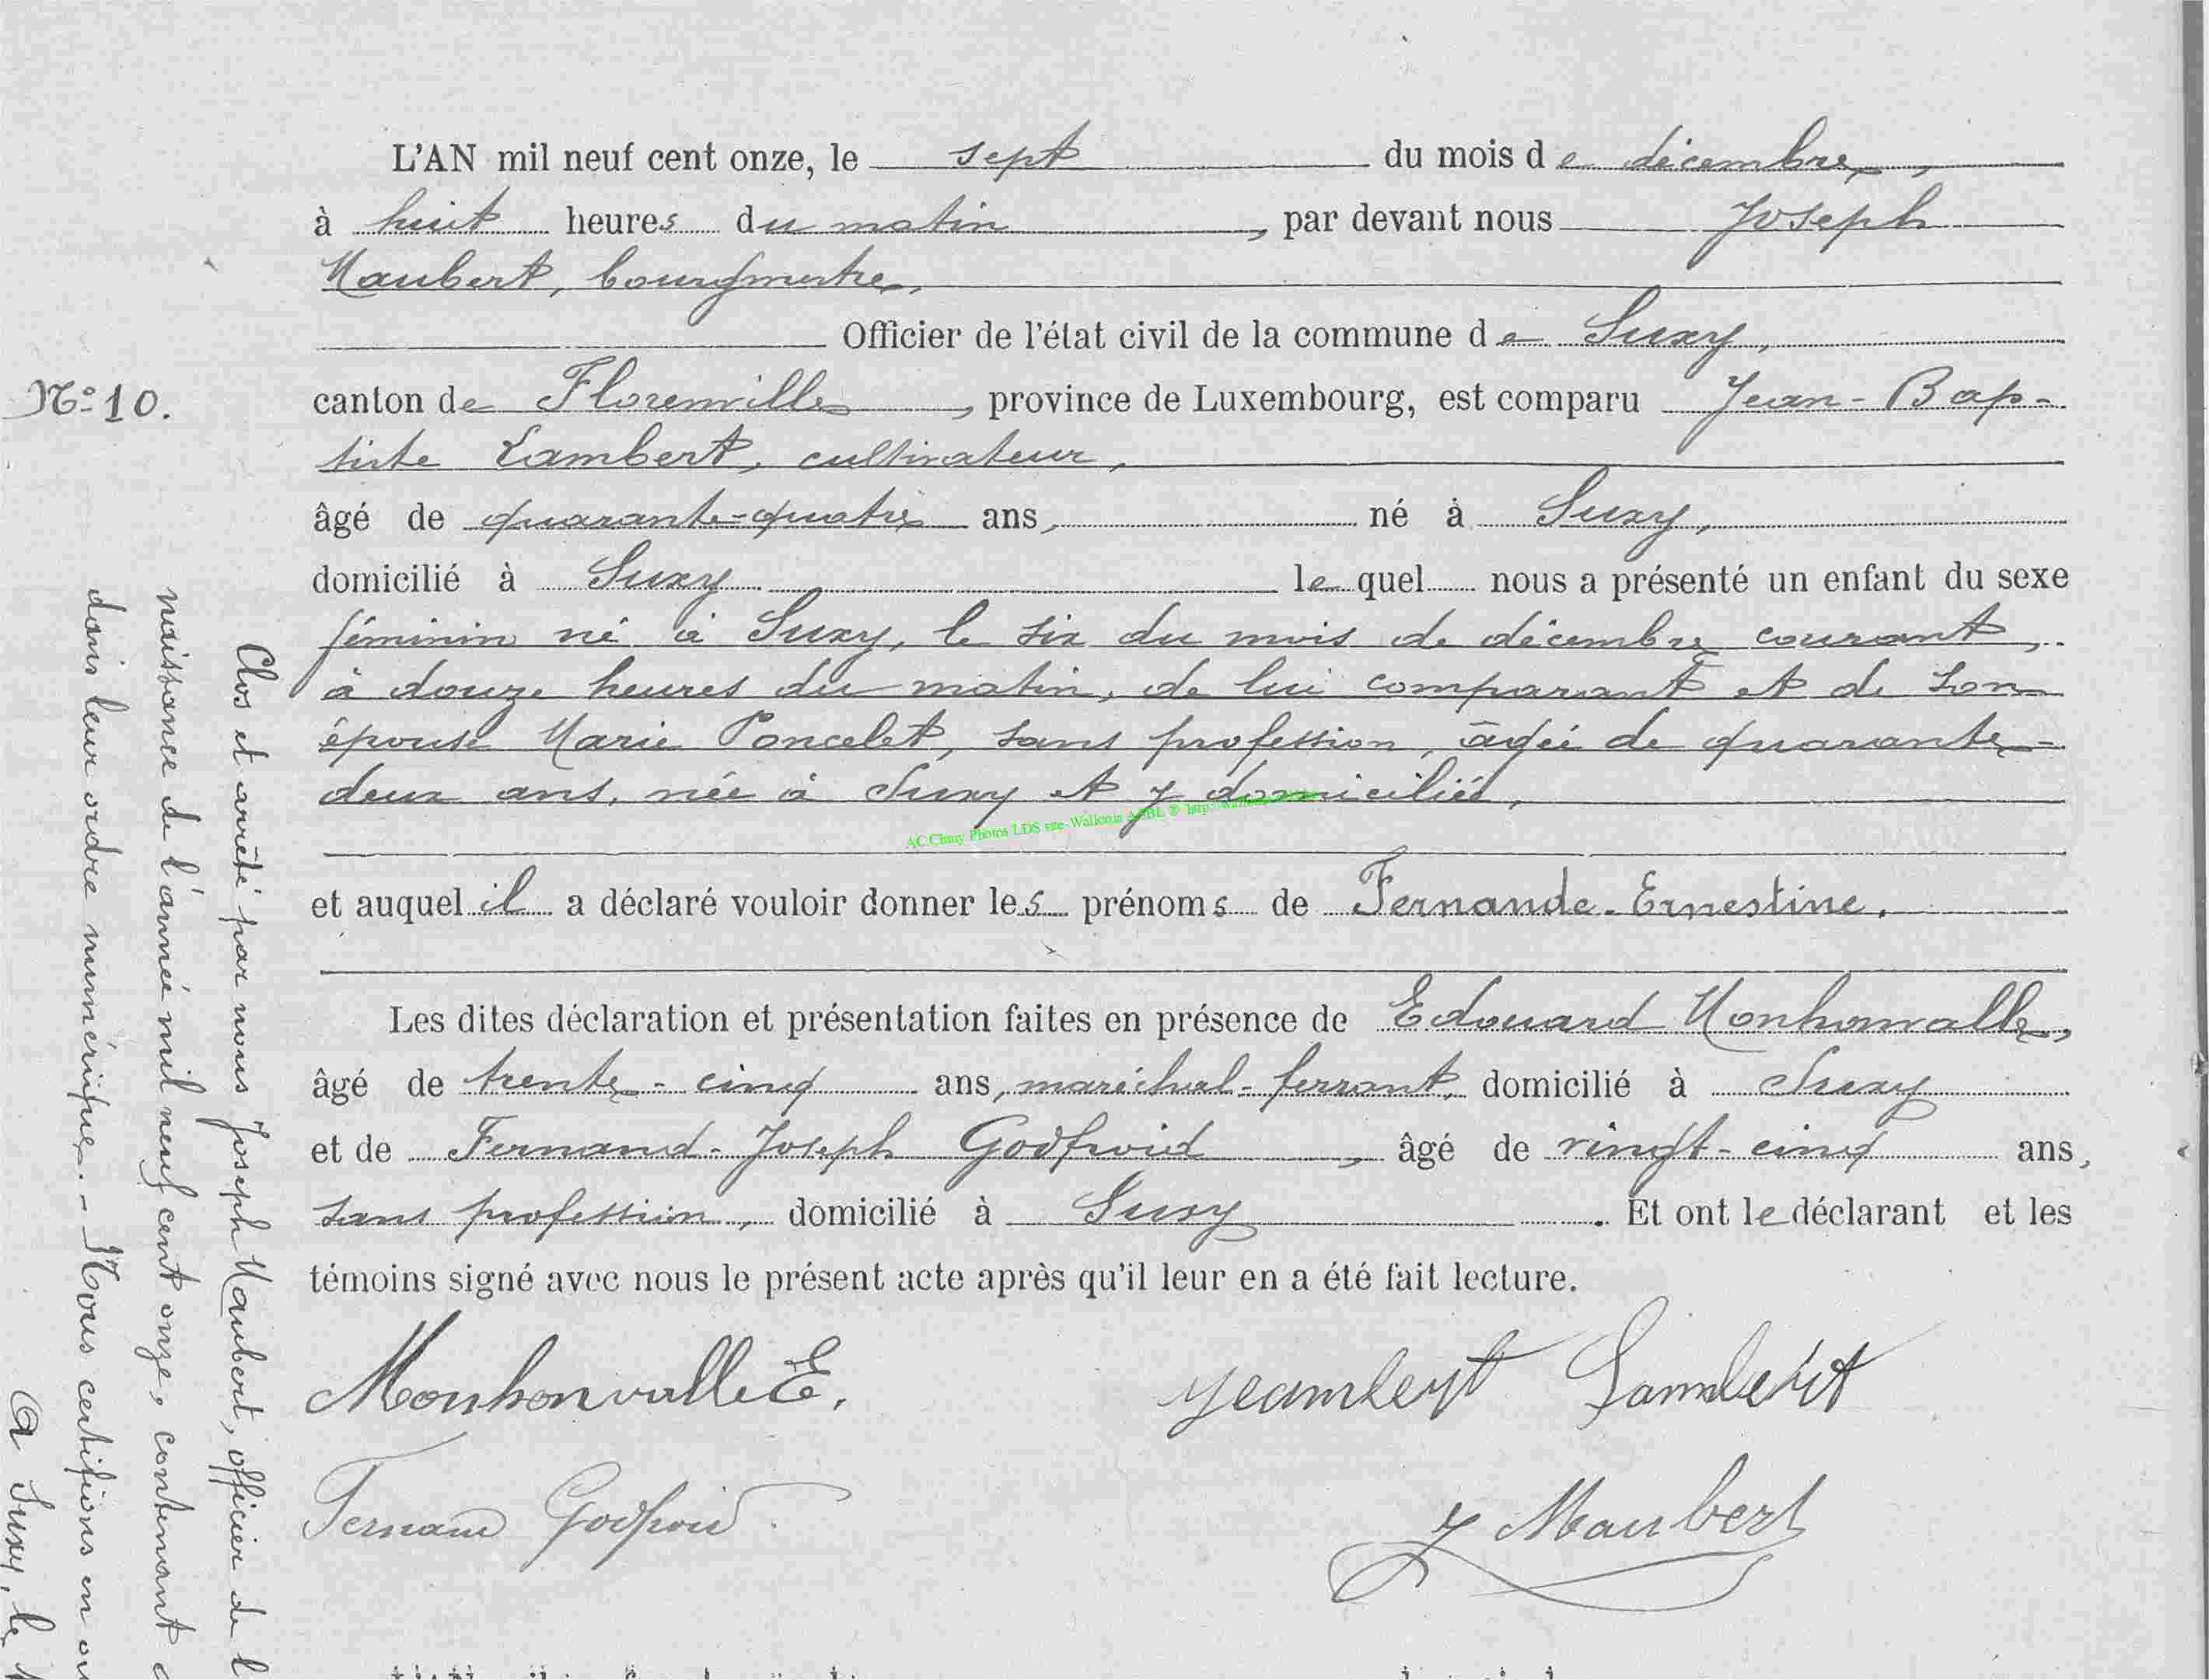 L'AN mil neuf cent onze, le sept du mois de décembre,
à huit heures du matin, par devant nous Joseph
Maubert, bourgmestre,
Officier de l'état civil de la commune de Suxy,
N° 10.
canton de Florenville, province de Luxembourg, est comparu Jean-Bap-
tiste Lambert, cultivateur,
âgé de quarante-quatre ans, né à Suxy,
domicilié à Suxy lequel nous a présenté un enfant du sexe
féminin né à Suxy, le six du mois de décembre courant,
à douze heures du matin, de lui comparant et de son
épouse Marie Poncelet, sans profession, âgée de quarante-
deux ans, née à Suxy et y domiciliée,
AC Chiny Photos LDS site-Wallonia ASBL ©
et auquel il a déclaré vouloir donner les prénoms de Fernande-Ernestine.
Les dites déclaration et présentation faites en présence de Edouard Monhonvalle,
âgé de trente-cinq ans, maréchal-ferrant, domicilié à Suxy
et de Fernand-Joseph Godfroid, âgé de vingt-cinq ans,
sans profession, domicilié à Suxy. Et ont le déclarant et les
témoins signé avec nous le présent acte après qu'il leur en a été fait lecture.
Monhonvalle E.
Lambert
Fernand Godfroid
J Maubert
Clos et arrêté par nous Joseph Maubert, officier de l
naissance de l'année mil neuf cent onze, contenant
dans leur ordre numérique. - Nous certifions en ou
A Suxy, le